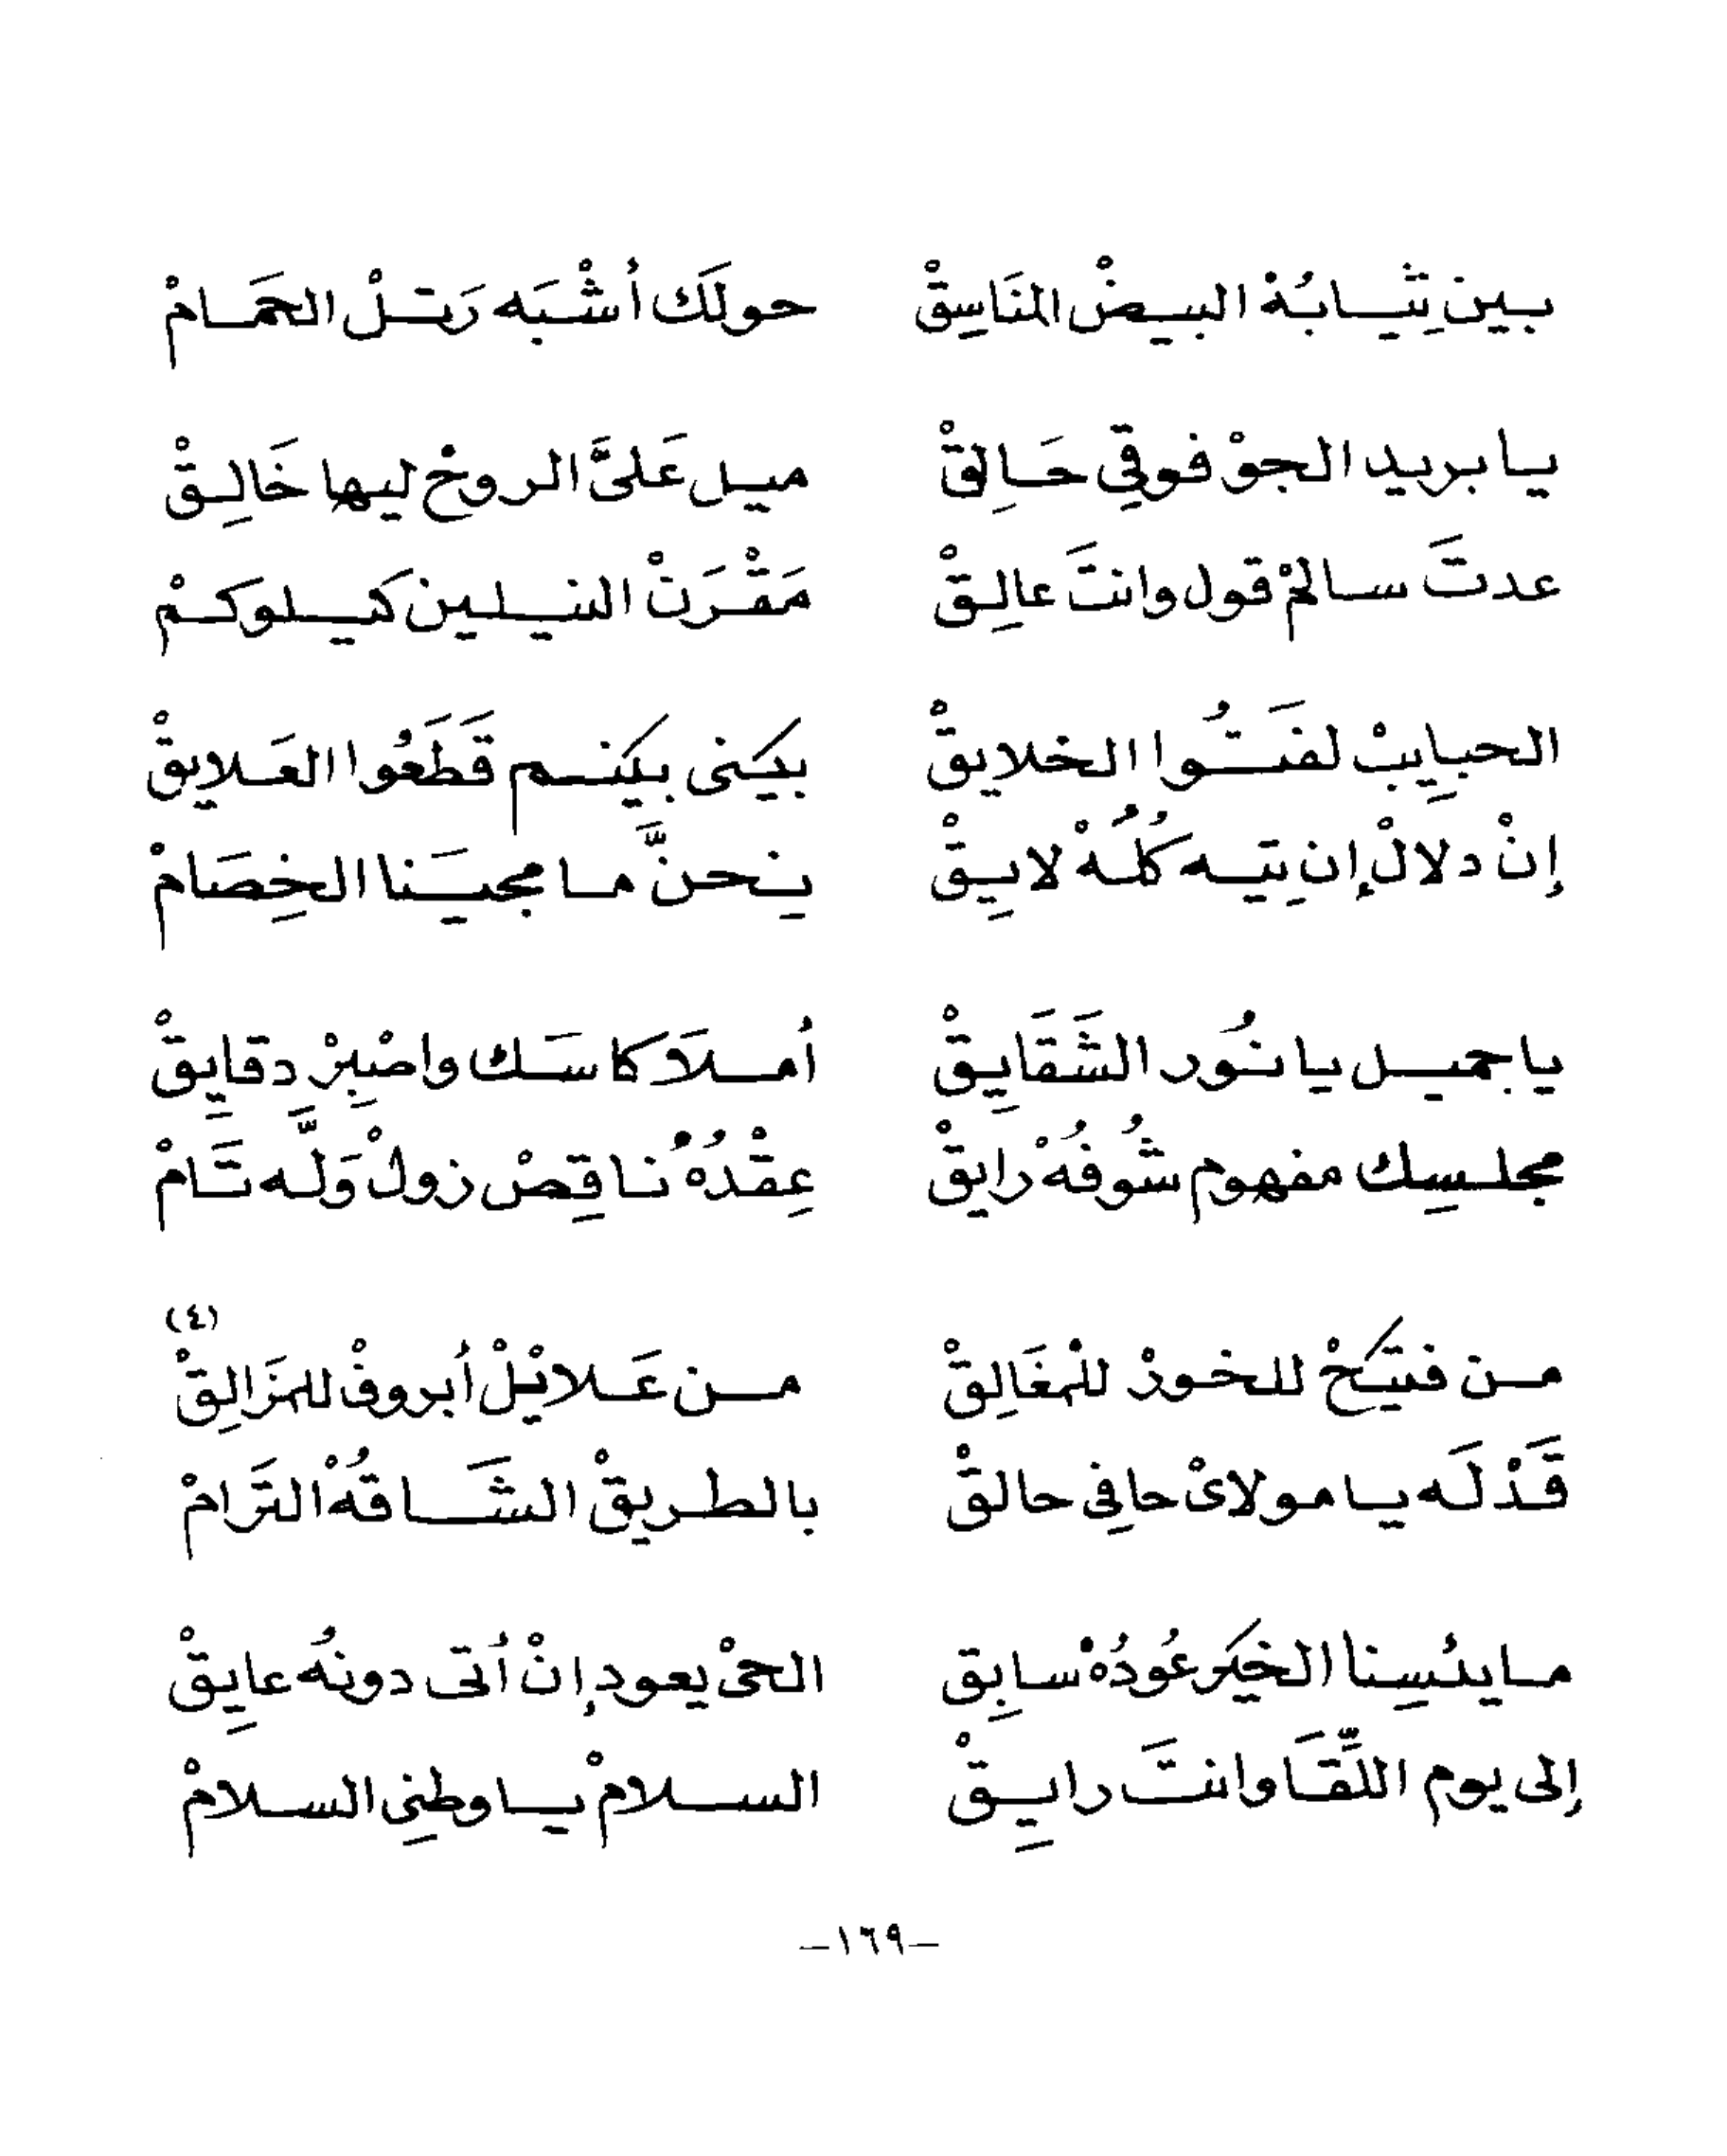 بين ثِيابُهْ البيضْ المنَاسِقْ    حولَك أشْبَه رَتلْ الحَمَامْ
يا بريد الجوْ فوقِي حَالِقْ    ميل عَلىَّ الروحْ ليها خَالِقْ
عدتَ سالمْ قول وانتَ عالِقْ    مَقْرَنْ النيلين كيلوكمْ
الحبايِبْ لفَتُوا الخلايقْ    بيَنى بيَنم قَطَعُوا العَلايِقْ
إنْ دلالْ إن تِيه كُلُهْ لايِقْ    نِحنَّ ما مجيَنا الخِصَامْ
يا جميل يا نُور الشَقَايِقْ    أملَا كاسَك واصْبِرْ دقايِقْ
مجلسِك مفهوم شُوفُهْ رايِقْ    عِقْدُهُ ناقِصْ زولْ وَلَّه تَامْ
(٤)
من فتيَحْ للخورْ للْمغَالِقْ    من عَلايْلْ أبروفْ للمزَالِقْ
قَدْلَه يا مولاىْ حافِى حالقْ    بالطريقْ الشَاقهُ الترَامْ
ما يئسِنا الخيَر عُودُهْ سابِق    الحىْ يعود إنْ أتى دونهُ عايِقْ
إلى يوم اللِّقَا وانتَ رايِقْ    السلامْ يا وطنِى السلامْ
–١٦٩–